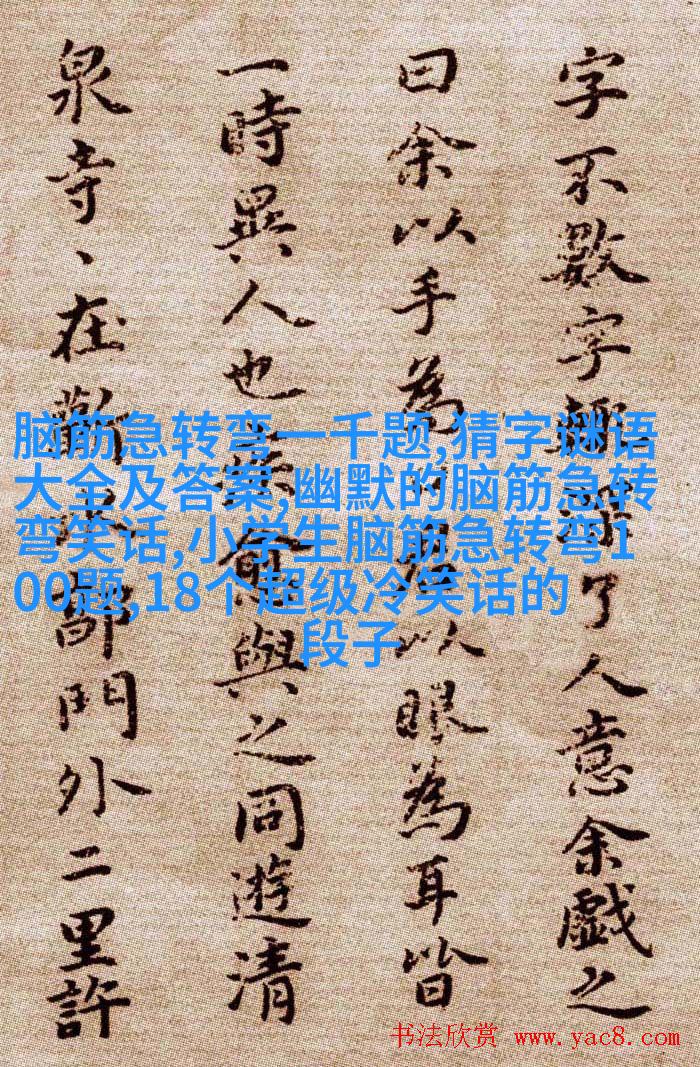 字不數字了人意余戲之
曰余以手為以眼為耳皆
一時異人也與之同遊清
泉寺、在門外二里許
脑筋急转弯一千题,猜字谜语
大全及答案,幽默的脑筋急转
弯笑话,小学生脑筋急转弯1
00题,18个超级冷笑话的
段子
书法欣赏 www.yac8.com